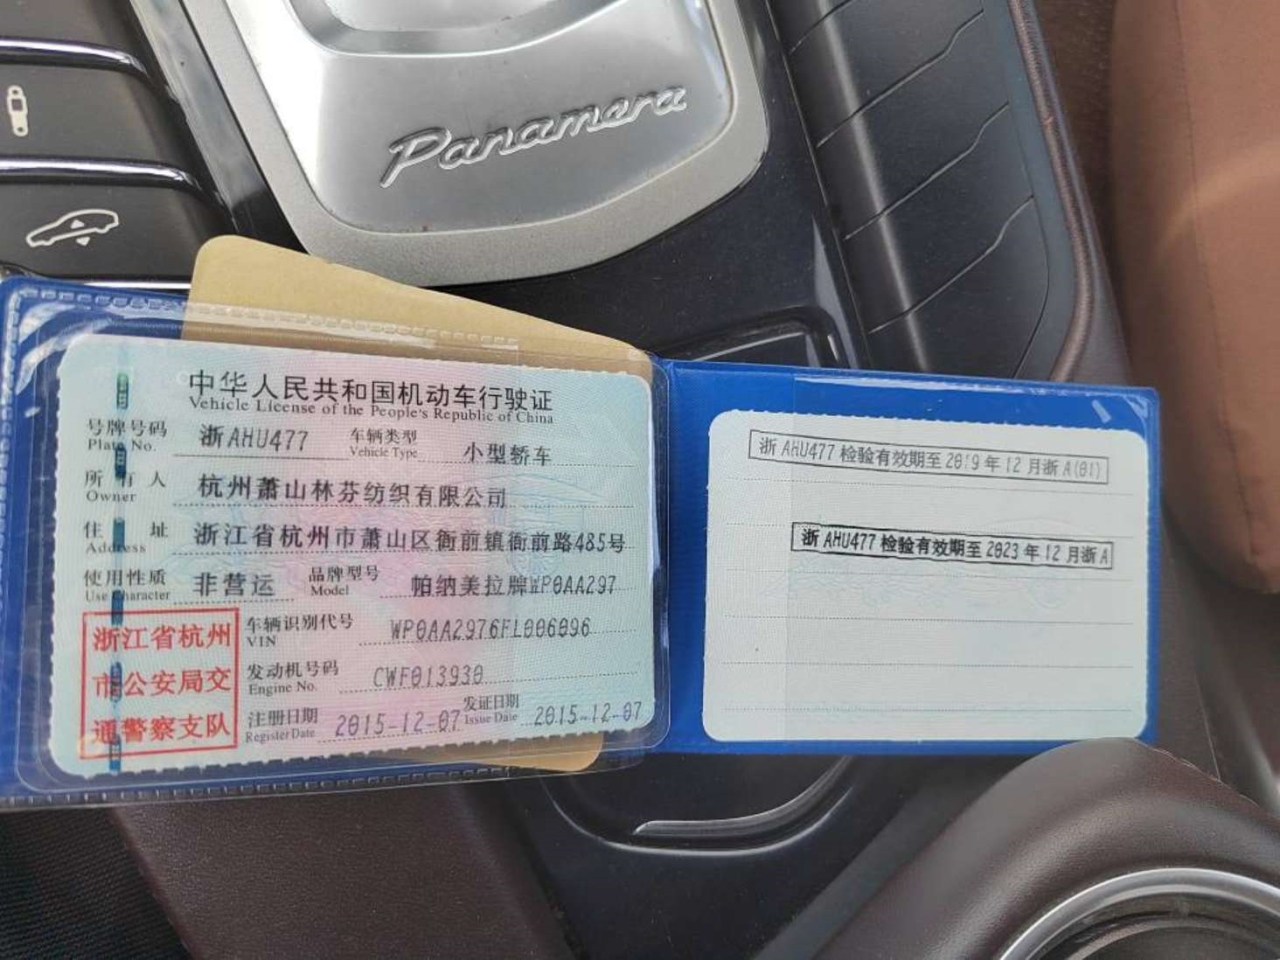 Panamera
中华人民共和国机动车行驶证
Vehicle License of the People's Republic of China
号牌号码 浙AHU477 车辆类型 小型轿车
Plate No. Vehicle Type
所有人 杭州萧山林芬纺织有限公司
Owner
住址 浙江省杭州市萧山区衙前镇衙前路485号
Address
使用性质 非营运 品牌型号 帕纳美拉牌WP0AA297
Use Character Model
浙江省杭州
市公安局交
通警察支队
车辆识别代号 WP0AA2976FL006096
VIN
发动机号码 CWF013930
Engine No.
注册日期 2015-12-07 发证日期 2015-12-07
Register Date Issue Date
浙 AHU477 检验有效期至 2019 年 12 月浙 A(01)
浙 AHU477 检验有效期至 2023 年 12 月浙 A